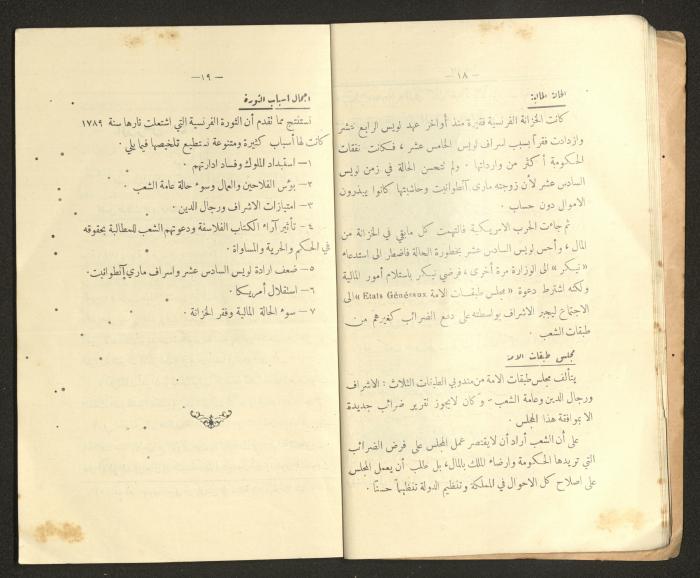 — ١٨ —
الحالة المالية:
كانت الخزانة الفرنسية فقيرة منذ أواخر عهد لويس الرابع عشر
وازدادت فقراً بسبب اسراف لويس الخامس عشر ، فكانت نفقات
الحكومة أكثر من وارداتها . ولم تتحسن الحالة في زمن لويس
السادس عشر لأن زوجته ماري آنطوانيت وحاشيتها كانوا يبذرون
الاموال دون حساب .
ثم جاءت الحرب الامريكية فالتهمت كل مابقي في الخزانة من
المال ، وأحس لويس السادس عشر بخطورة الحالة فاضطر الى استدعاء
« نيكر » الى الوزارة مرة أخرى ، فرضي نيكر باستلام أمور المالية
ولكنه اشترط دعوة « مجلس طبقات الامة Etats Généraux » الى
الاجتماع ليجبر الاشراف بواسطته على دفع الضرائب كغيرهم من
طبقات الشعب .
مجلس طبقات الامة
يتألف مجلس طبقات الامة من مندوبي الطبقات الثلاث : الاشراف
ورجال الدين وعامة الشعب – وكان لايجوز تقرير ضرائب جديدة
الا بموافقة هذا المجلس .
على أن الشعب أراد أن لايقتصر عمل المجلس على فرض الضرائب
التي تريدها الحكومة وارضاء الملك بالمال، بل طلب أن يعمل المجلس
على اصلاح كل الاحوال في المملكة وتنظيم الدولة تنظيماً حسناً .
— ١٩ —
اجمال اسباب الثورة
نستنتج مما تقدم أن الثورة الفرنسية التي اشتعلت نارها سنة ١٧٨٩
كانت لها أسباب كثيرة ومتنوعة نستطيع تلخيصها فيما يلي .
١— استبداد الملوك وفساد ادارتهم .
٢— بؤس الفلاحين والعمال وسوء حالة عامة الشعب .
٣— امتيازات الاشراف ورجال الدين .
٤— تأثير آراء الكتاب الفلاسفة ودعوتهم الشعب للمطالبة بحقوقه
في الحكم والحرية والمساواة .
٥— ضعف ارادة لويس السادس عشر واسراف ماري آنطوانيت .
٦— استقلال أمريكا .
٧— سوء الحالة المالية وفقر الخزانة .